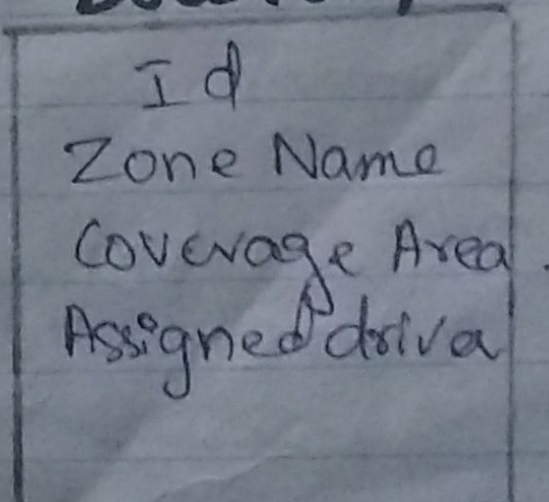 Id
Zone Name
Coverage Area
Assigned driva